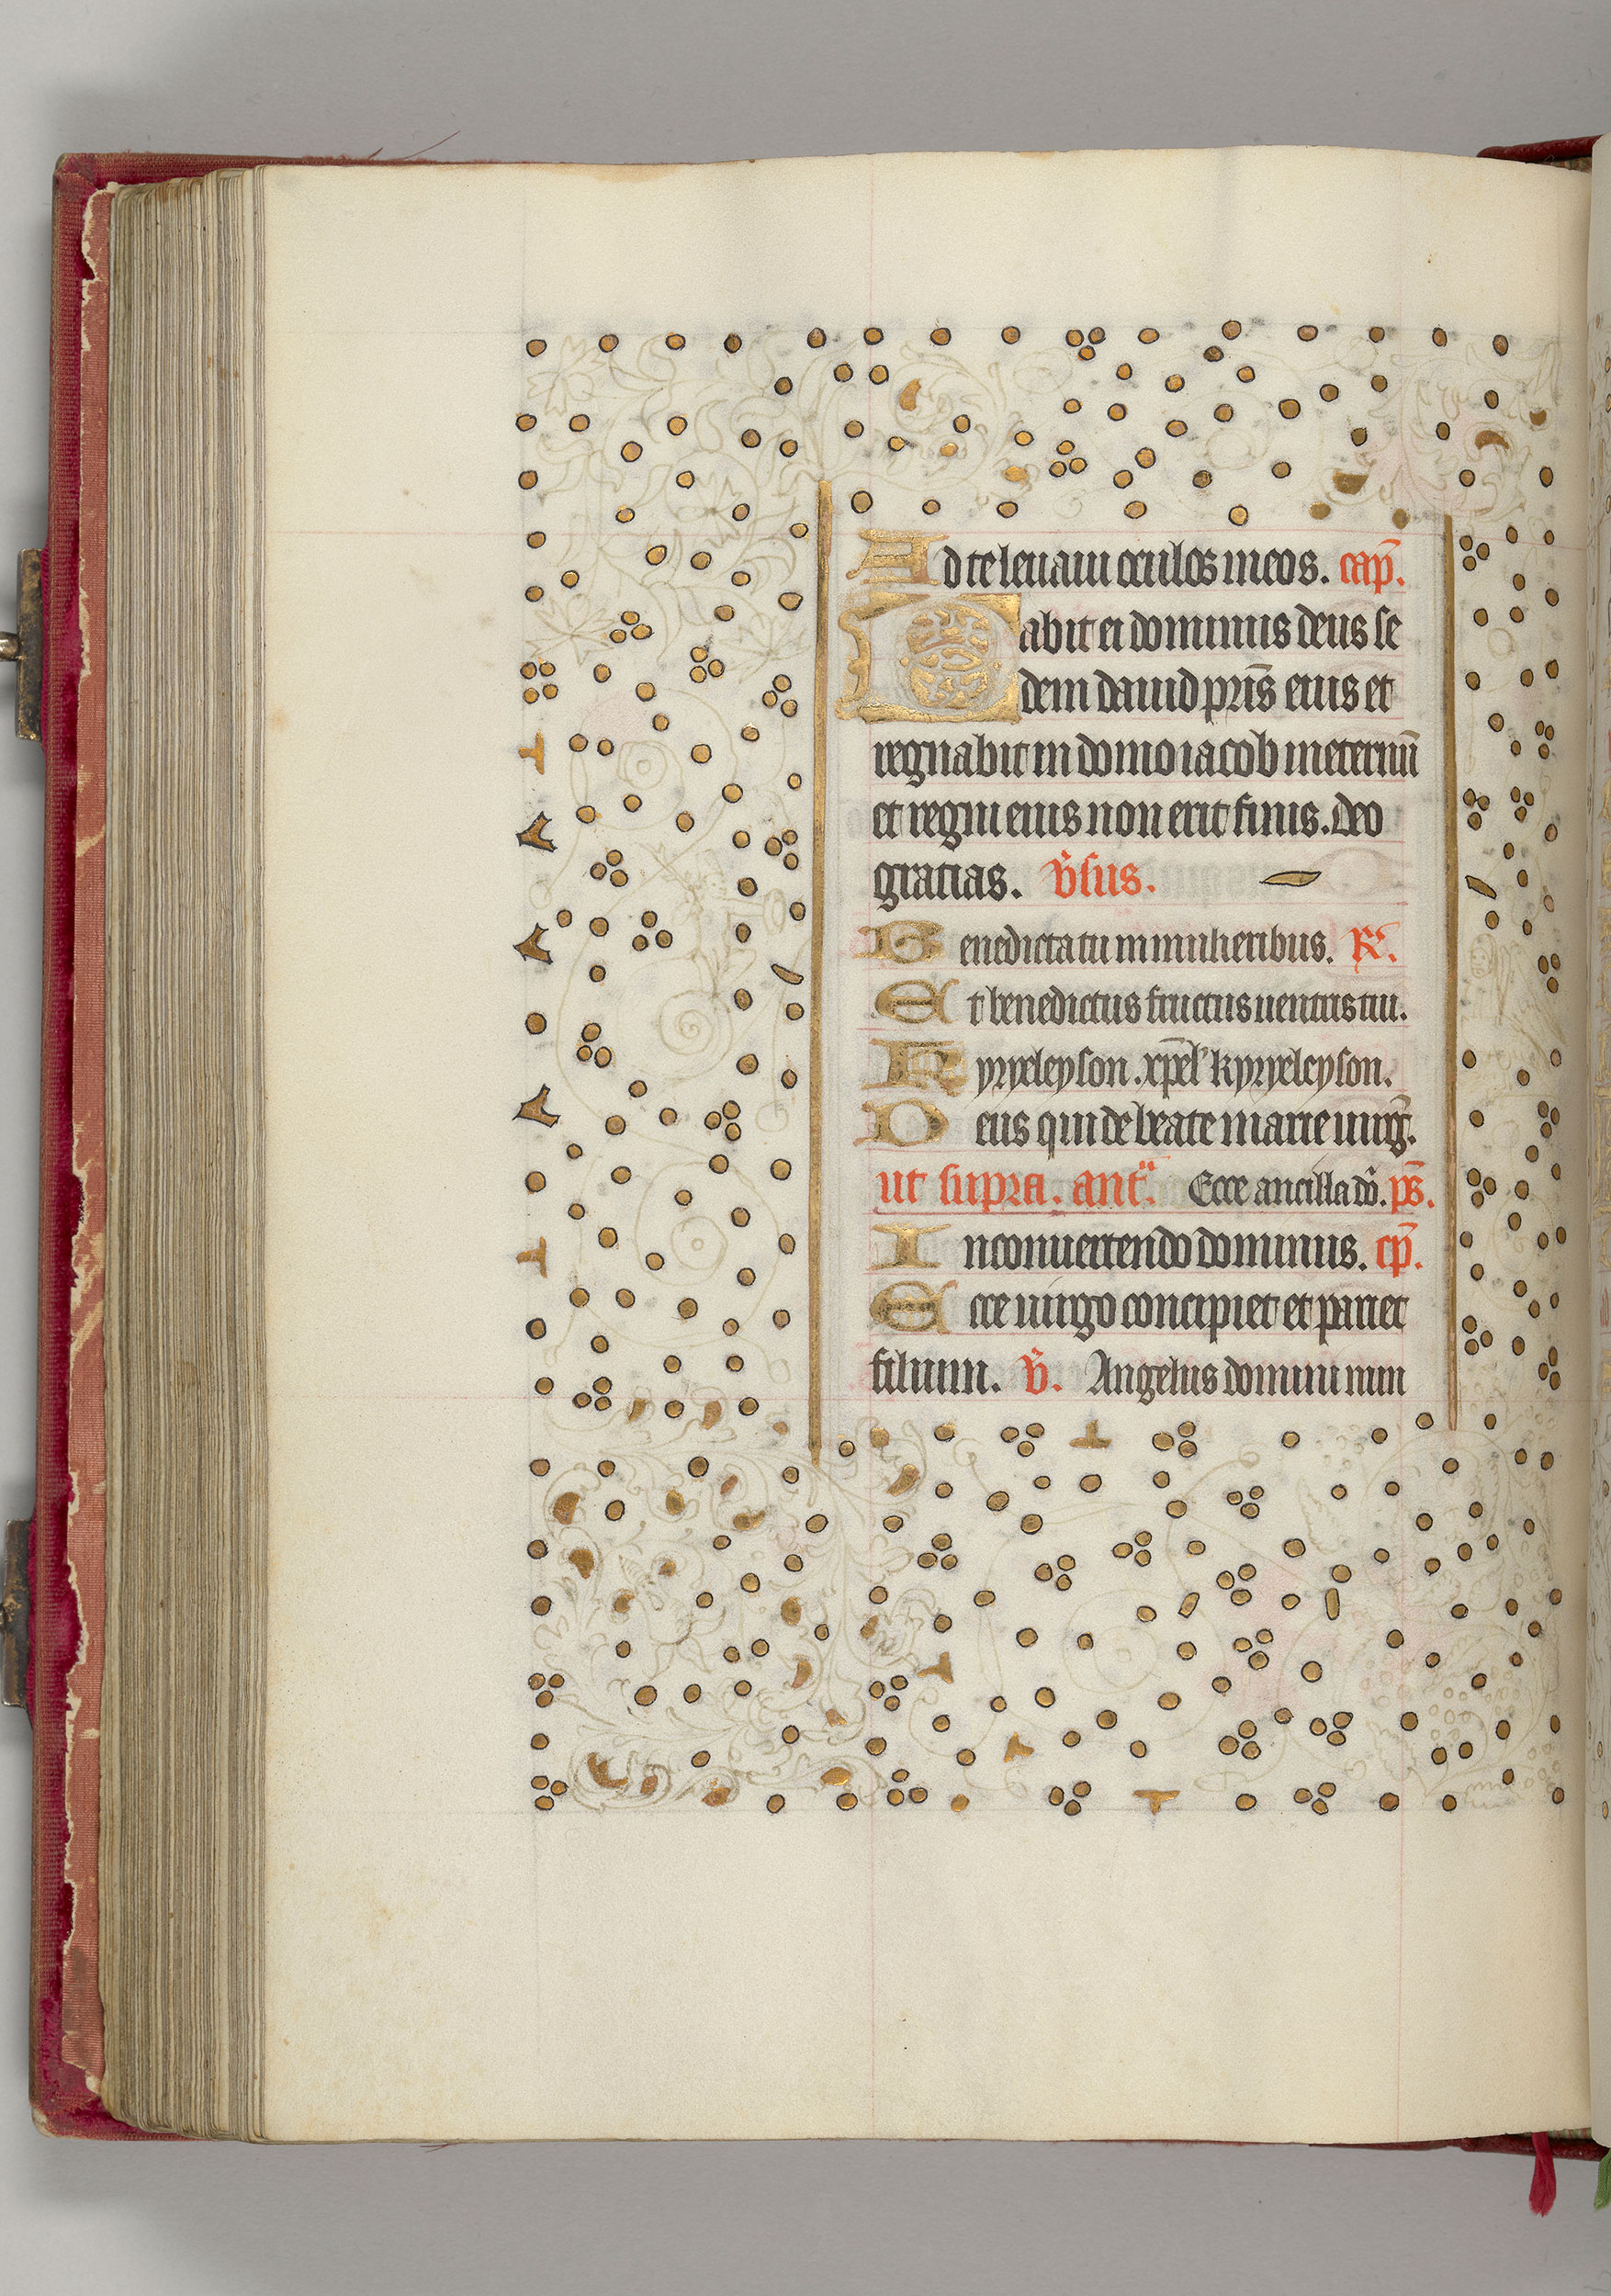 Ad te leuaui oculos meos. cap̄.
Dabit ei dominus deus se
dem dauid pr̄is eius et
regnabit in domo iacob in eternū
et regni eius non erit finis. Deo
gracias. v̄sus.
Benedicta tu in mulieribus. R̷.
Et benedictus fructus uentris tui.
Kyryeleyson. xp̄el' kyryeleyson.
Deus qui de beate marie uirḡ.
ut supra. antᵃ. Ecce ancilla dō. ps̄.
In conuertendo dominus. cp̄.
Ecce uirgo concipiet et pariet
filium. v̄. Angelus domini nun